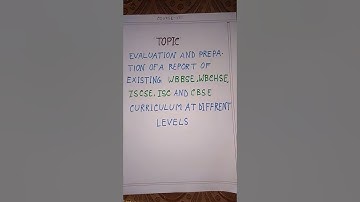 TOPIC
EVALUATION AND PREPA-
TION OF A REPORT OF
EXISTING WBBSE, WBCHSE,
ISCSE, ISC AND CBSE
CURRICULUM AT DIFFRENT
LEVELS